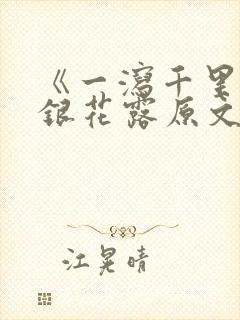 《一瀉千里
銀花露原文
江晃晴